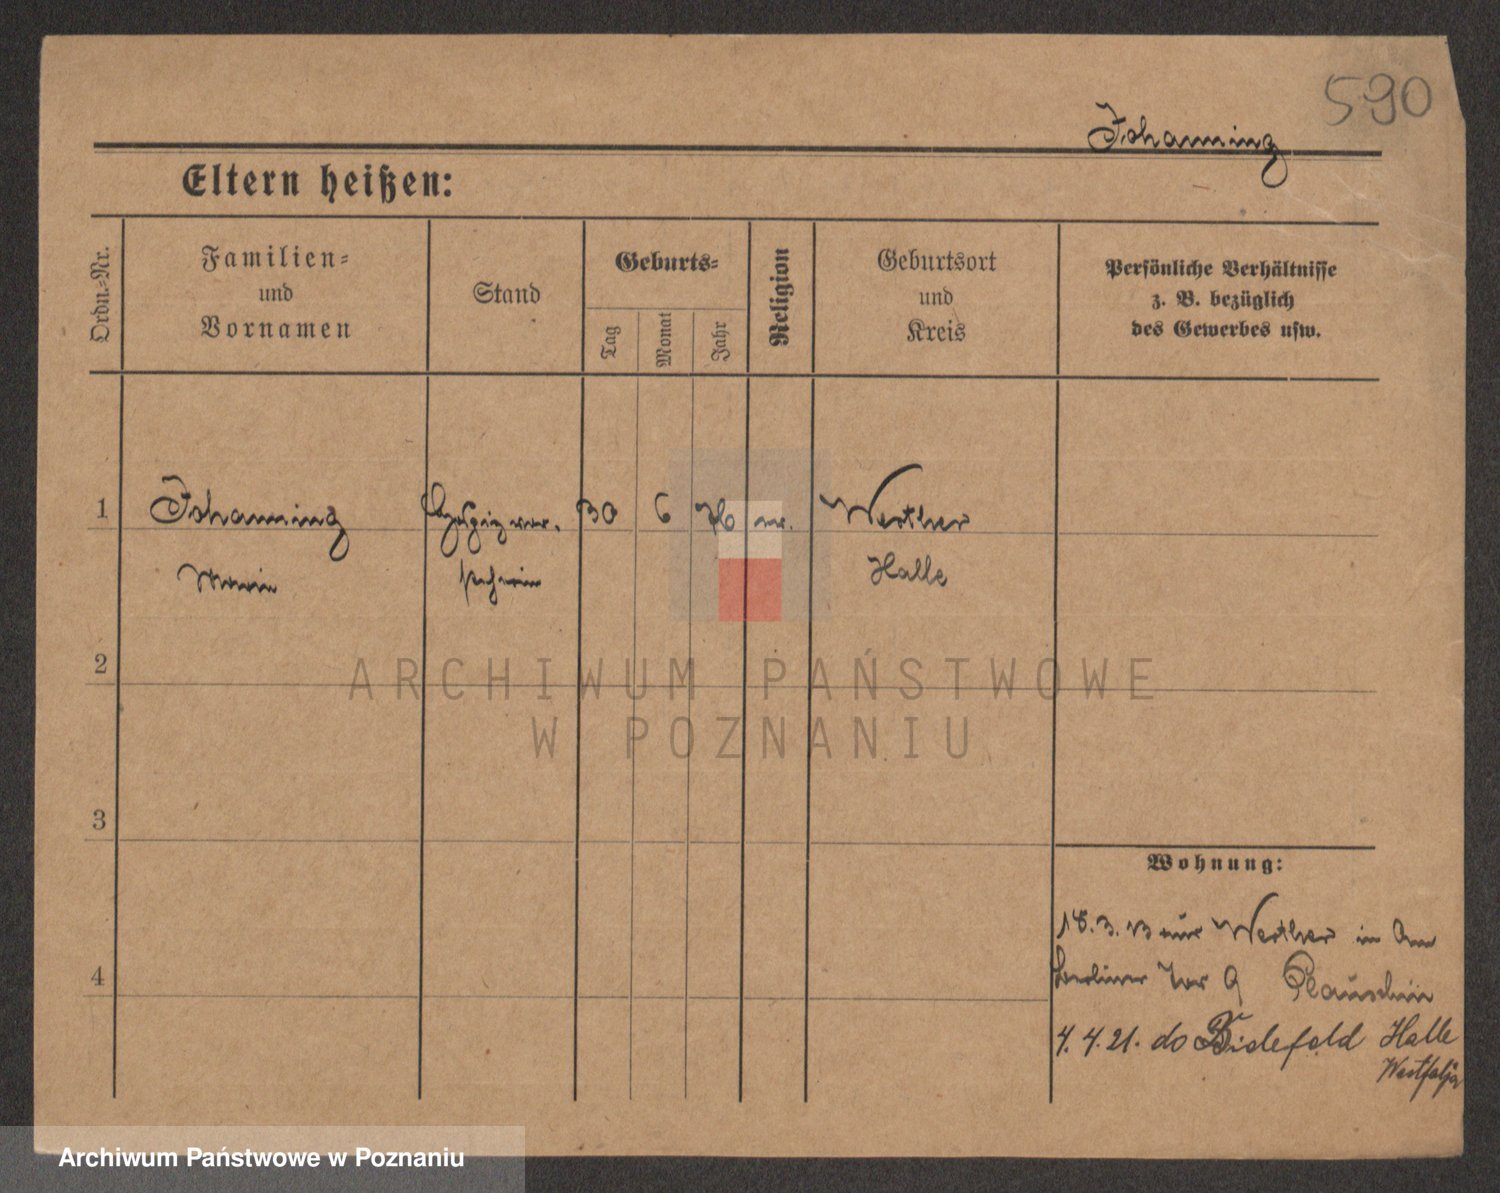 590
Johanning
Eltern heißen:
Ordn.-Nr.
Familien-
und
Vornamen
Stand
Geburts-
Tag
Monat
Jahr
Religion
Geburtsort
und
Kreis
Persönliche Verhältnisse
z. B. bezüglich
des Gewerbes usw.
1 Johanning Hospizvor- 30 6 76 ev. Werther
Marie steherin Halle
2
ARCHIWUM PAŃSTWOWE
W POZNANIU
3
Wohnung:
18.3.13 aus Werther in Am
4 Berliner Tor 9
4.4.21. do Bielefeld Halle
Westfalja
Archiwum Państwowe w Poznaniu